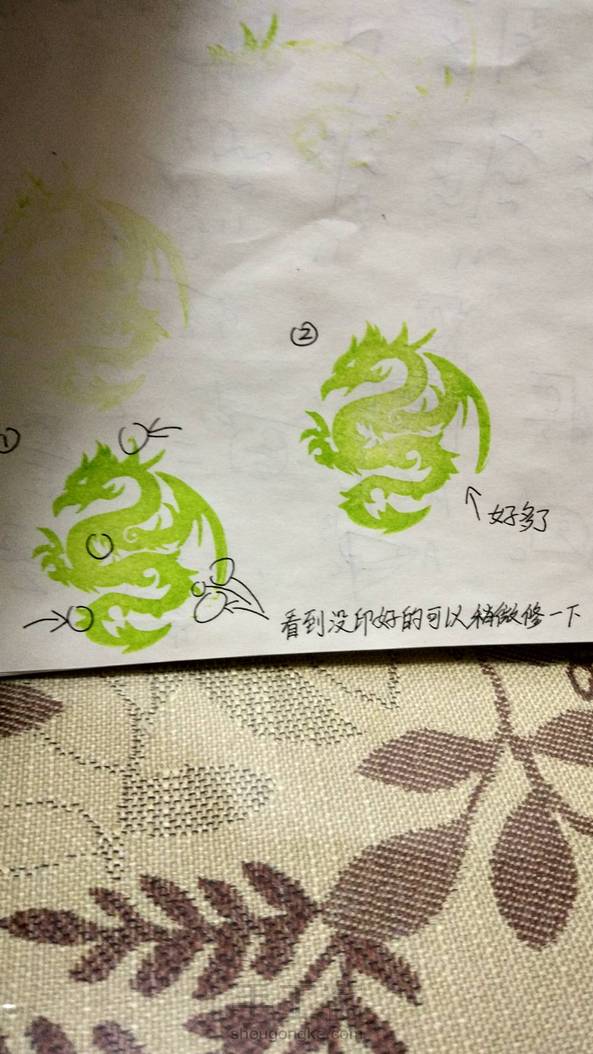 ②
①
好多了
看到没印好的可以稍微修一下
shougongke.com